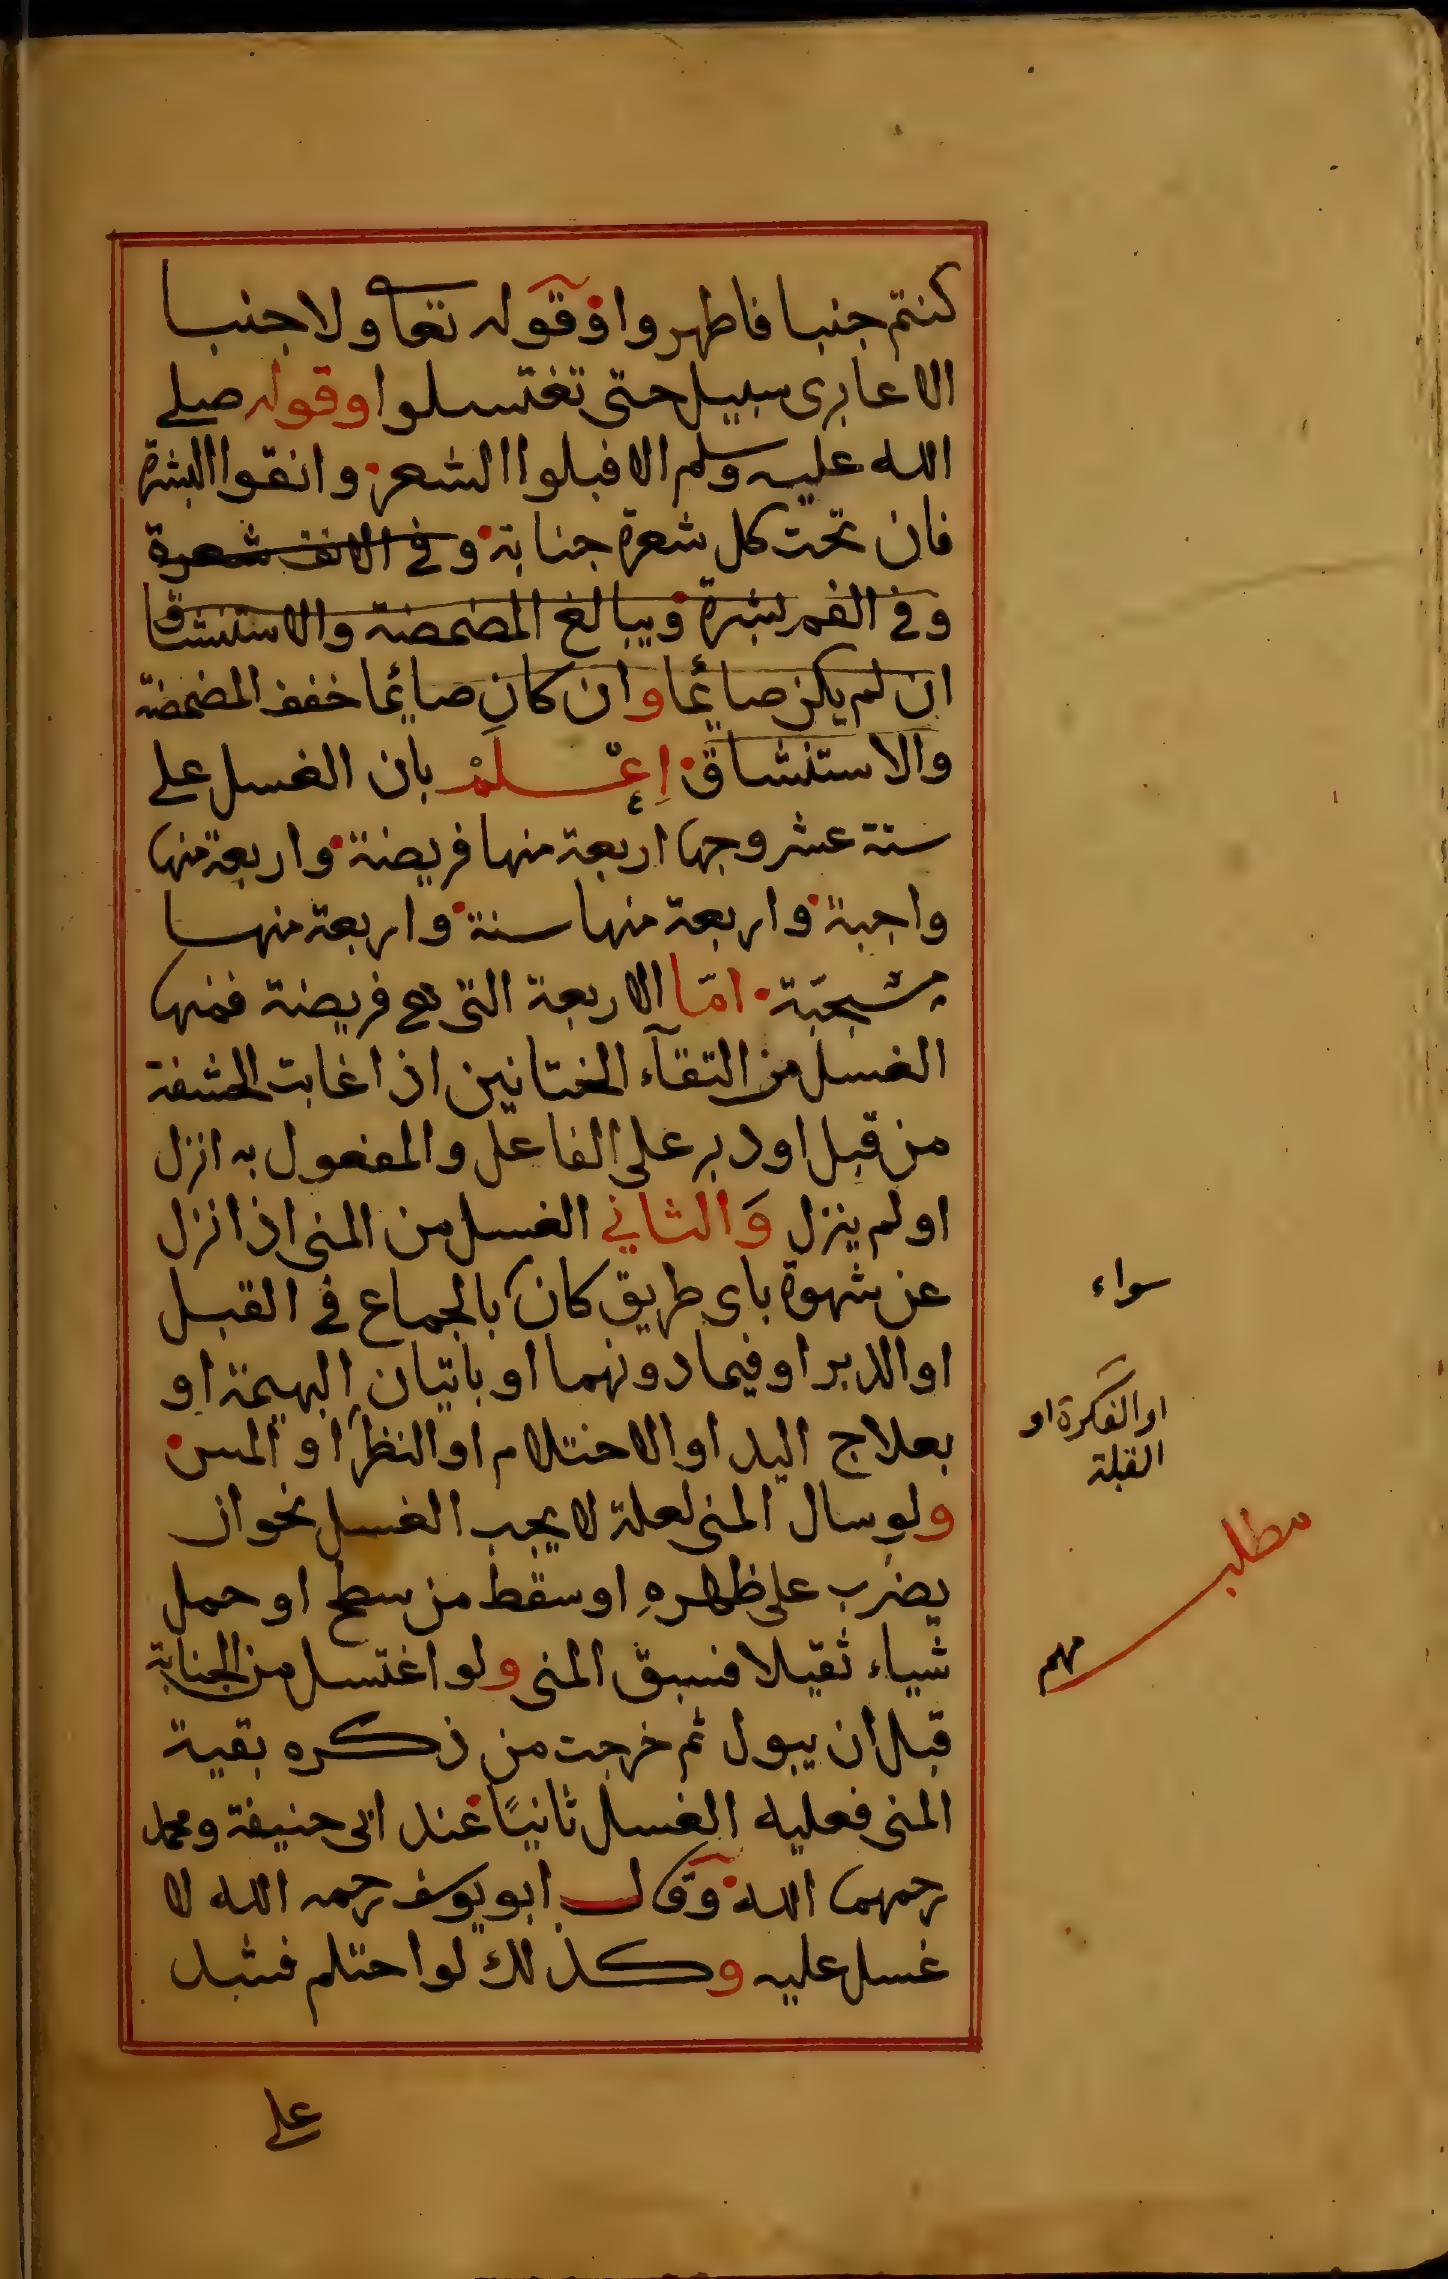 كنتم جنبا فاطهروا وقوله تعا ولا جنبا
الا عابرى سبيل حتى تغتسلوا وقوله صلى
الله عليه وسلم الا فبلوا الشعر وانقوا البشرة
فان تحت كل شعرة جنابة وفى الانف شعرة
وفى الفم بشرة ويبالغ المضمضة والاستنشاق
ان لم يكن صائما وان كان صائما خفف المضمضة
والاستنشاق اعلم بان الغسل على
ستة عشر وجها اربعة منها فريضة واربعة منها
واجبة واربعة منها سنة واربعة منها
مستحبة اما الاربعة التى هى فريضة فمنها
الغسل من التقآء الختانين اذا غابت الحشفة
من قبل او دبر على الفاعل والمفعول به انزل
او لم ينزل والثانى الغسل من المنى اذا نزل
عن شهوة باى طريق كان بالجماع فى القبل
سواء
او الدبر او فيما دونهما او باتيان البهيمة او
بعلاج اليد او الاحتلام او النظر او المس
او الفكرة او
القبلة
ولو سال المنى لعلة لا يجب الغسل نحو ان
مطلب
يضرب على ظهره او سقط من سطح او حمل
شياء ثقيلا فسبق المنى ولو اغتسل من الجنابة
مهم
قبل ان يبول ثم خرجت من ذكره بقية
المنى فعليه الغسل ثانيًا عند ابى حنيفة ومحمد
رحمهما الله وقال ابو يوسف رحمه الله لا
غسل عليه وكذلك لو احتلم فشد
على